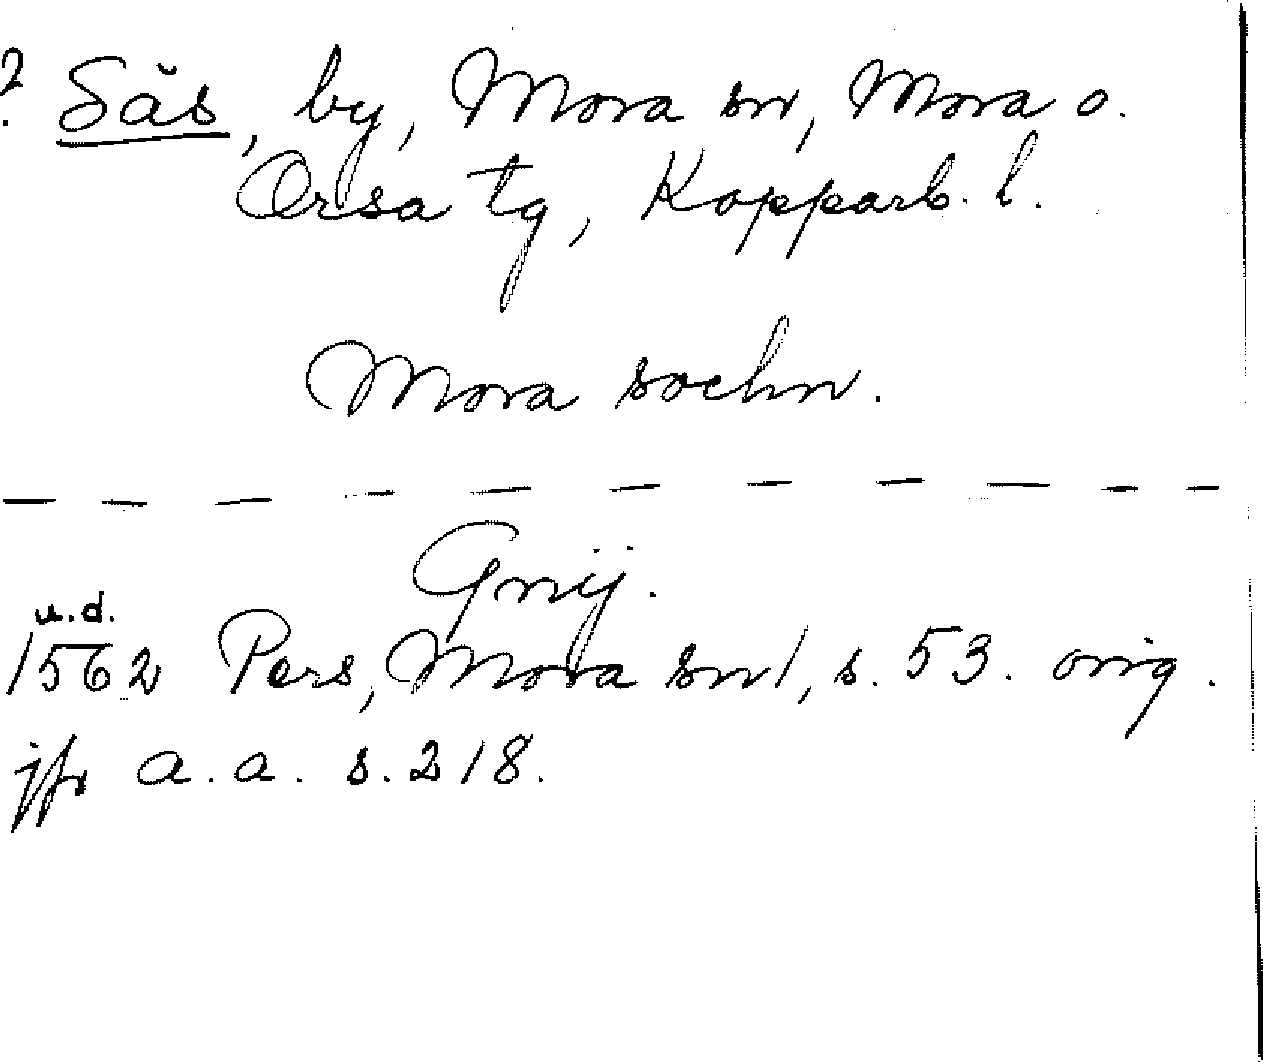 ? Sås, by, Mora sn, Mora o.
Orsa tg, Kopparb. l.
Mora sochn.
Gnij.
u.d.
1562 Pers, Mora sn I, s. 53. orig.
jfr a. a. s. 218.